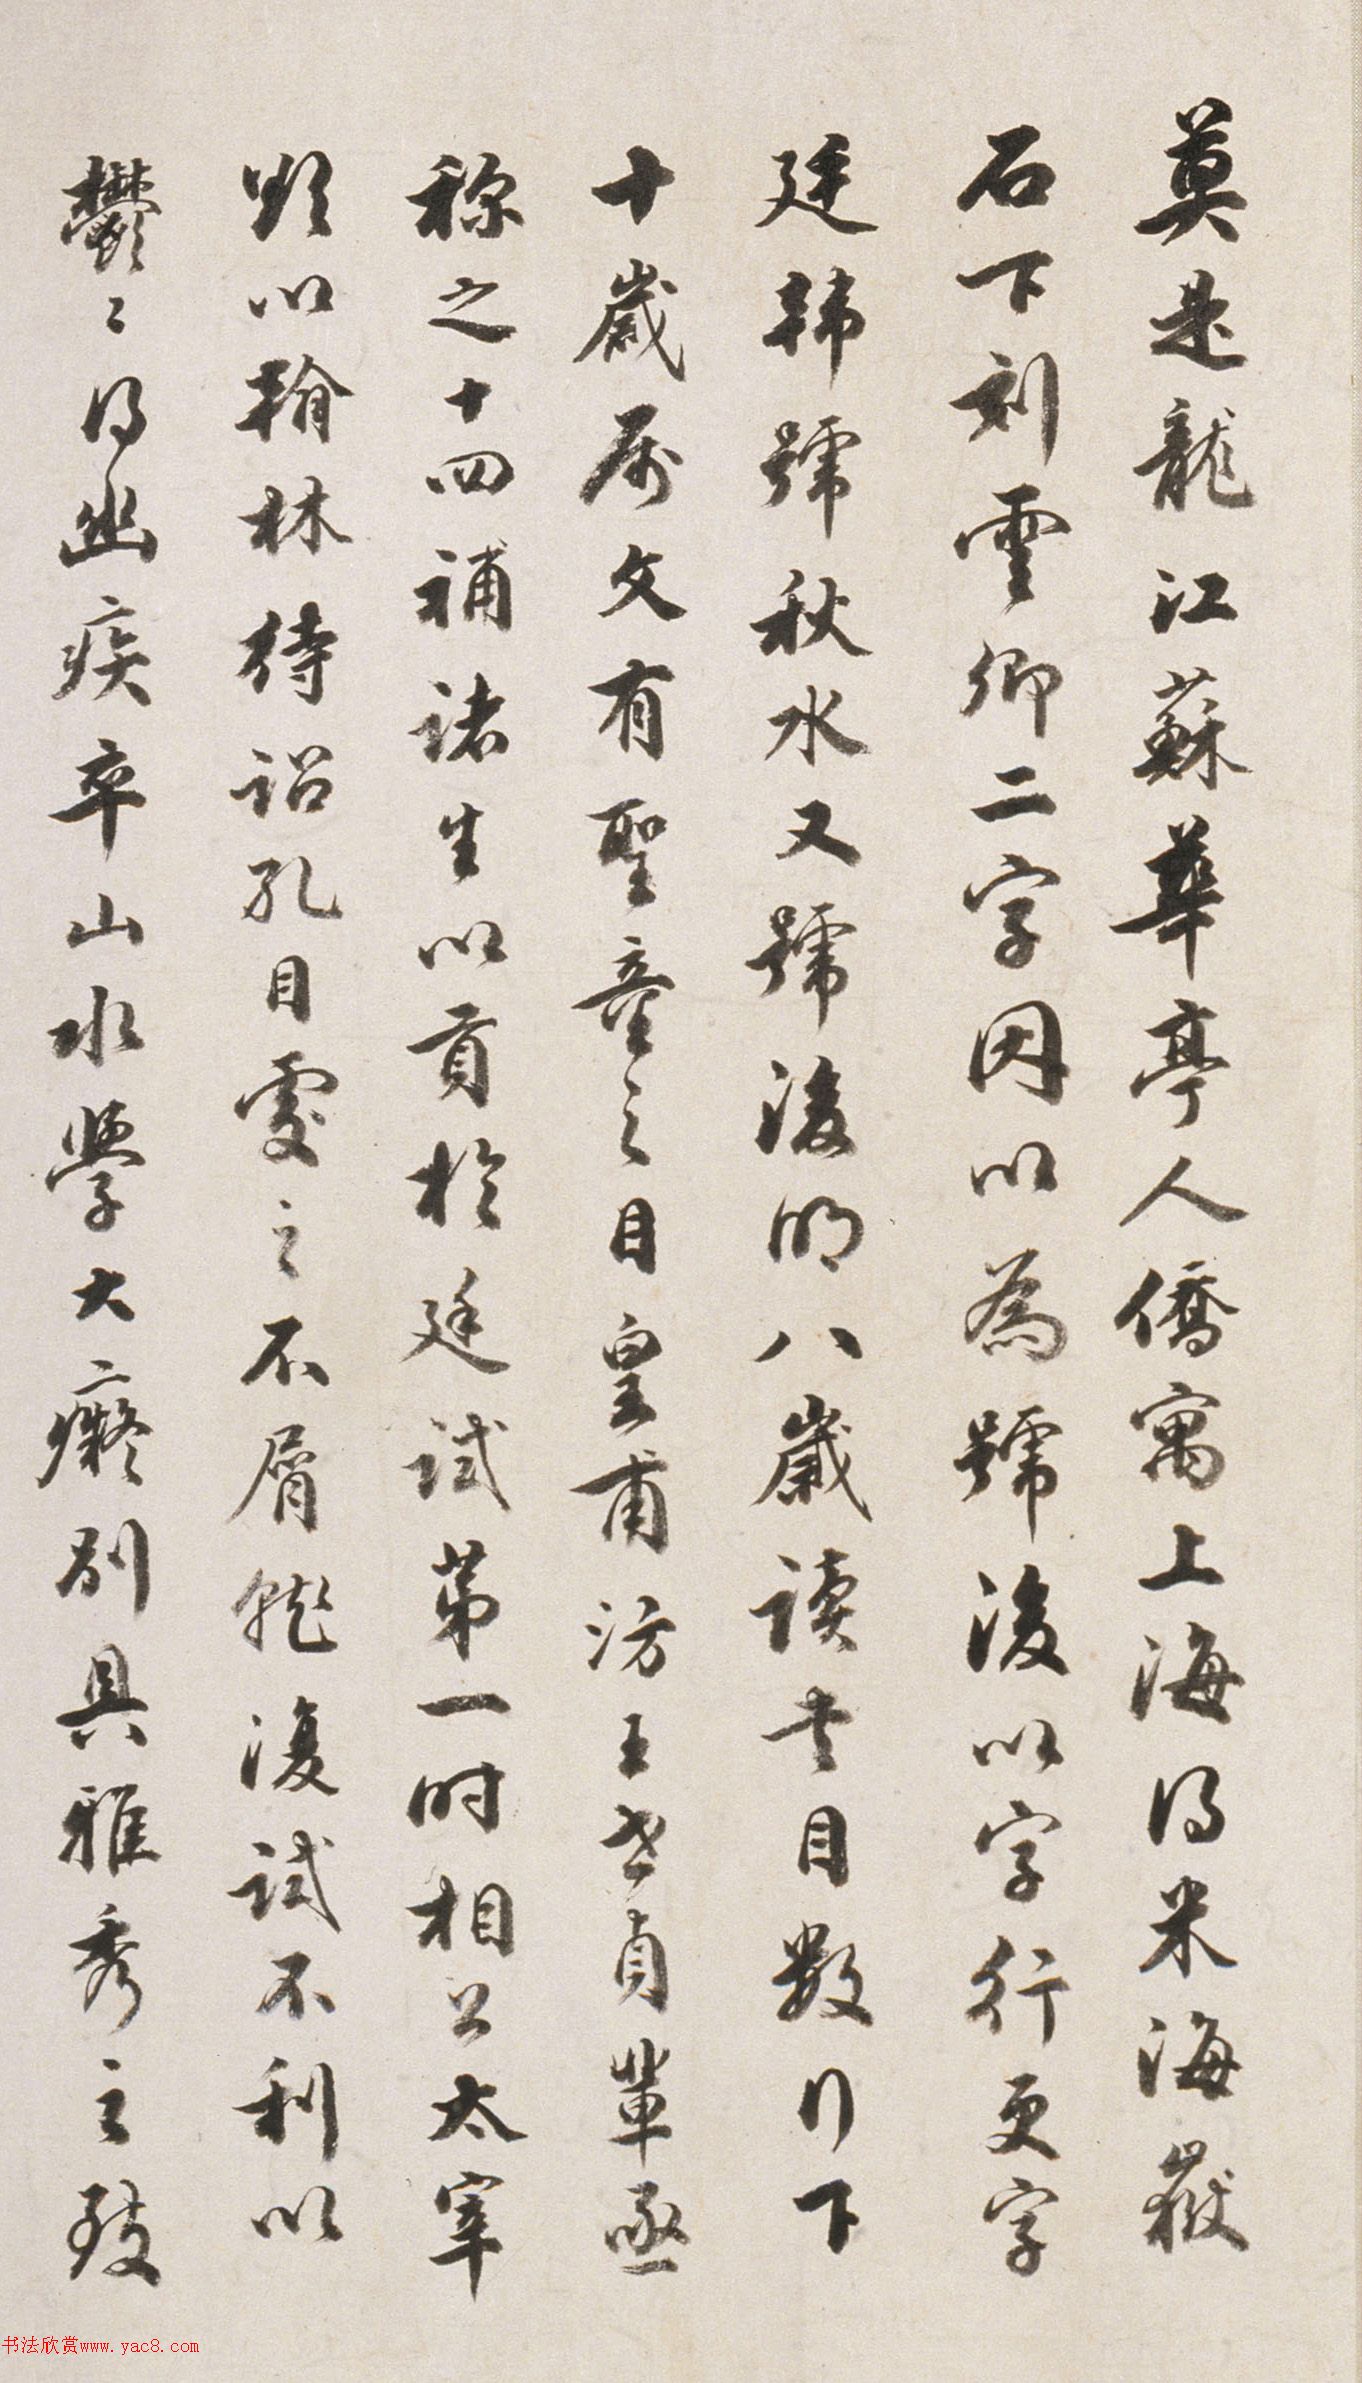 莫是龍江蘇華亭人僑寓上海得米海嶽
石下刻雲卿二字因以為號後以字行更字
廷韓號秋水又號後明八歲读书目數行下
十歲属文有聖童之目皇甫汸王世貞輩亟
称之十四補諸生以貢於廷試第一時相公太宰
欲以翰林待詔孔目處之不屑就復試不利以
鬱〻得幽疾卒山水學大癡別具雅秀之致
书法欣赏www.yac8.com